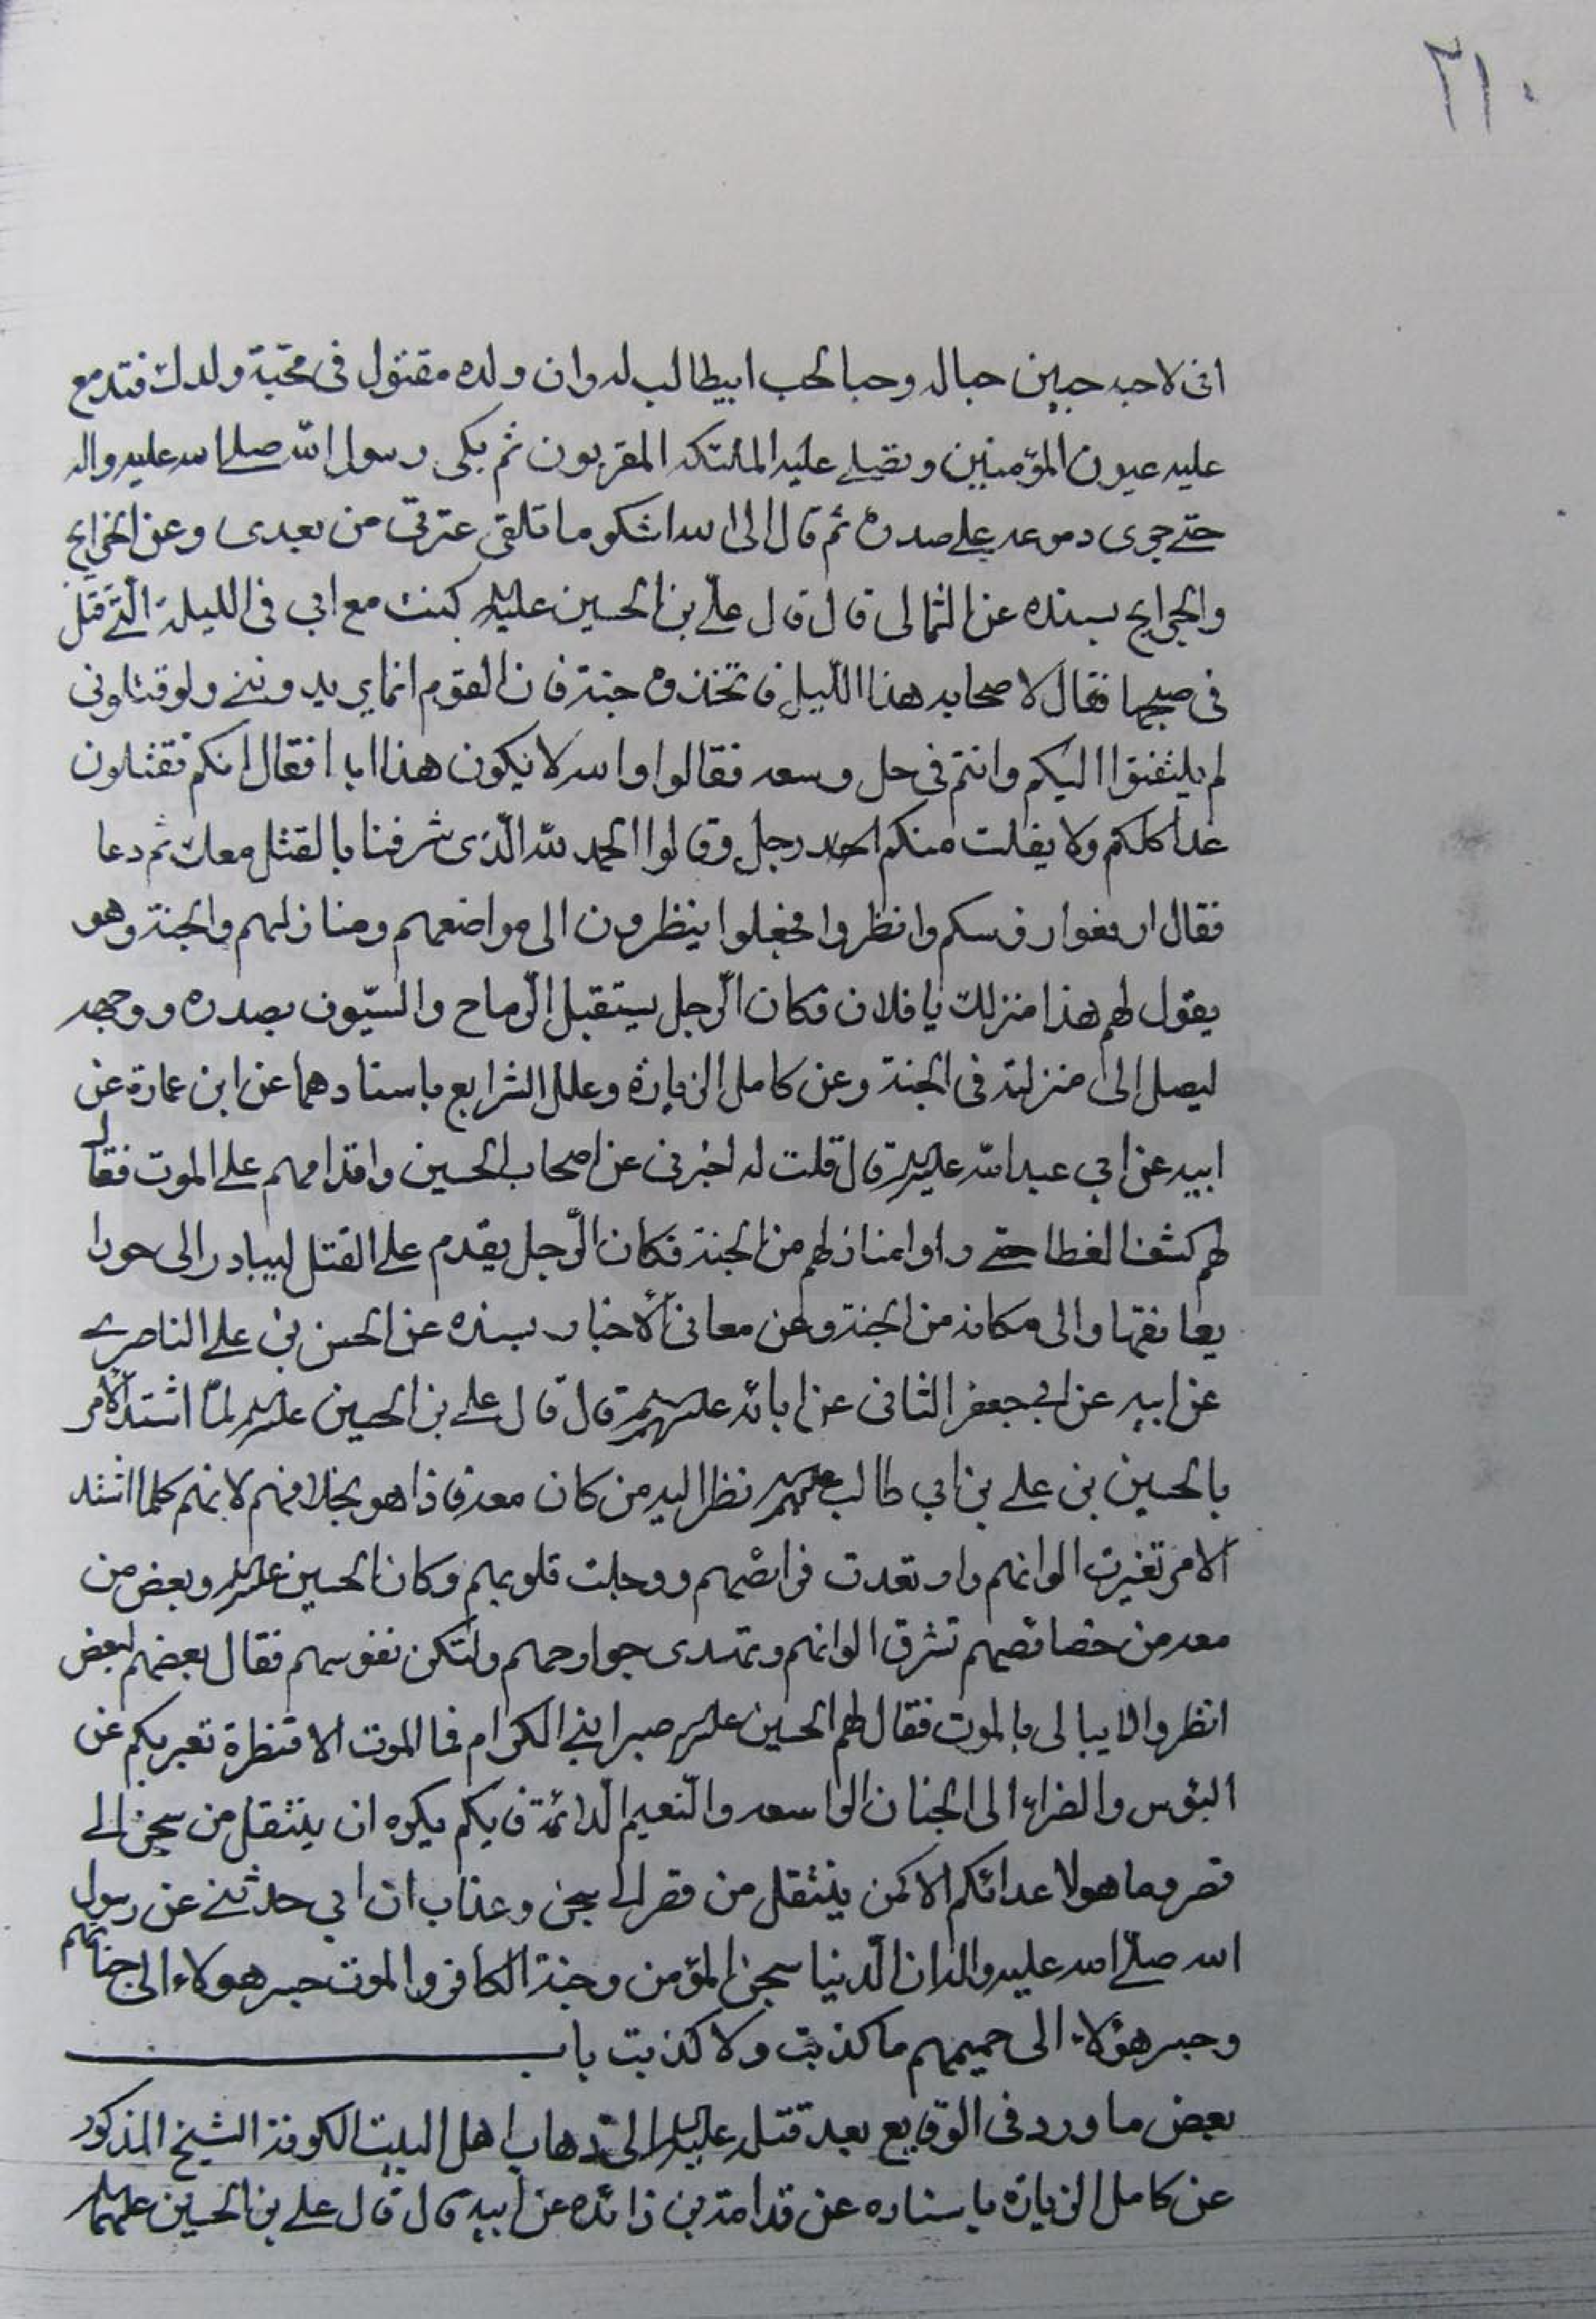 ٢١٠
انى لاحبه حبين حبا له وحبا لحب ابيطالب له وان ولده مقتول فى محبة ولدك فتدمع
عليه عيون المؤمنين وتصلى عليه الملئكه المقربون ثم بكى رسول الله صلى الله عليه واله
حتى جرى دموعه على صدره ثم قال الى الله اشكو ما تلقى عترتى من بعدى وعن الخرايج
والجرايح بسنده عن الثمالى قال قال على بن الحسين عليه كنت مع ابى فى الليلة الّتى قتل
فى صبيحها فقال لاصحابه هذا اللّيل فاتخذوه جنة فان القوم انما يريدوننى ولو قتلونى
لم يلتفتوا اليكم وانتم فى حل وسعه فقالوا والله لا يكون هذا ابدا فقال انكم تقتلون
غدا كلكم ولا يفلت منكم احد رجل وقالوا الحمد لله الّذى شرفنا بالقتل معك ثم دعا
فقال ارفعوا رؤسكم وانظروا فجعلوا ينظرون الى مواضعهم ومنازلهم والجنة وهو
يقول لهم هذا منزلك يا فلان فكان الرّجل يستقبل الرّماح والسّيوف بصدره ووجهه
ليصل الى منزلته فى الجنة وعن كامل الزيارة وعلل الشرايع باسنادهما عن ابن عمارة عن
ابيه عن ابى عبد الله عليه قال قلت له اخبرنى عن اصحاب الحسين واقدامهم على الموت فقال
لهم كشف الغطا حتى راوا منازلهم من الجنة فكان الرّجل يقدم على القتل ليبادر الى حورا
يعانقها والى مكانه من الجنة وعن معانى الاخبار بسنده عن الحسن بن على الناصرى
عن ابيه عن ابى جعفر الثانى عن ابائه عليهم قال قال على بن الحسين عليه لمّا اشتد الامر
بالحسين بن على بن ابى طالب عليهم نظر اليه من كان معه فاذا هو بخلافهم لانهم كلما اشتد
الامر تغيرت الوانهم وارتعدت فرائصهم ووجلت قلوبهم وكان الحسين عليه وبعض من
معه من خصائصهم تشرق الوانهم وتهتدى جوارحهم ولتكن نفوسهم فقال بعضهم لبعض
انظروا لا يبالى بالموت فقال لهم الحسين عليه صبرا بنى الكرام فما الموت الا قنطرة تعبر بكم عن
البؤس والضراء الى الجنان الواسعه والنّعيم الدّائمة فايكم يكره ان ينتقل من سجن الى
قصر وما هو لاعدائكم الا كمن ينتقل من قصر الى سجن وعذاب ان ابى حدثنى عن رسول
الله صلّى الله عليه واله ان الّدنيا سجن المؤمن وجنة الكافر والموت جسر هولاء الى جناتهم
وجسر هؤلاء الى حميمهم ما كذبت ولا كذبت باب
بعض ما ورد فى الوقايع بعد قتله عليه الى ذهاب اهل البيت الكوفة الشيخ المذكور
عن كامل الزيارة باسناده عن قدامة بن زائده عن ابيه قال قال على بن الحسين عليهما